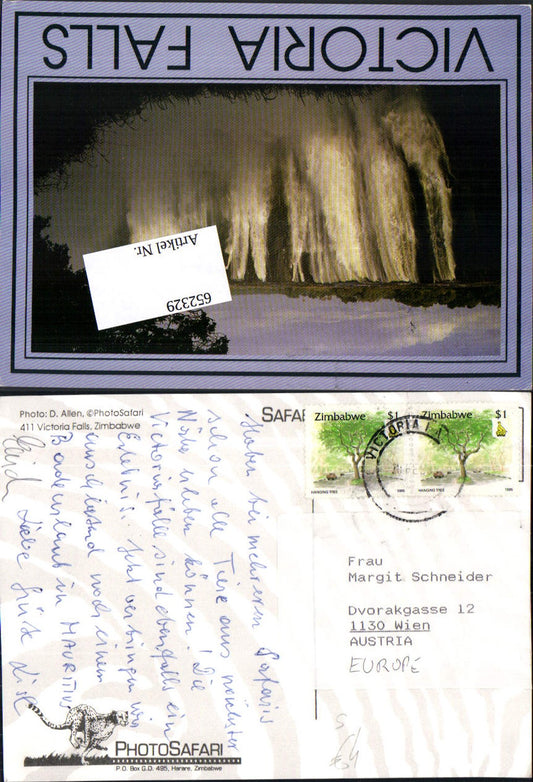 VICTORIA FALLS
Artikel Nr.
652329
Photo: D. Allen, ©PhotoSafari
411 Victoria Falls, Zimbabwe
SAFARI
Zimbabwe $1
Zimbabwe $1
HANGING TREE 1995
HANGING TREE 1995
VICTORIA F
Haben bei mehreren Safaris
schon alle Tiere aus nächster
Nähe erleben können! Die
Victoriafälle sind ebenfalls ein
Erlebnis. Jetzt verbringen wir
anschließend noch einen
Badeurlaub in MAURITIUS
Liebe Grüße
Frau
Margit Schneider
Dvorakgasse 12
1130 Wien
AUSTRIA
EUROPE
PHOTOSAFARI
P.O. Box G.D. 495, Harare, Zimbabwe